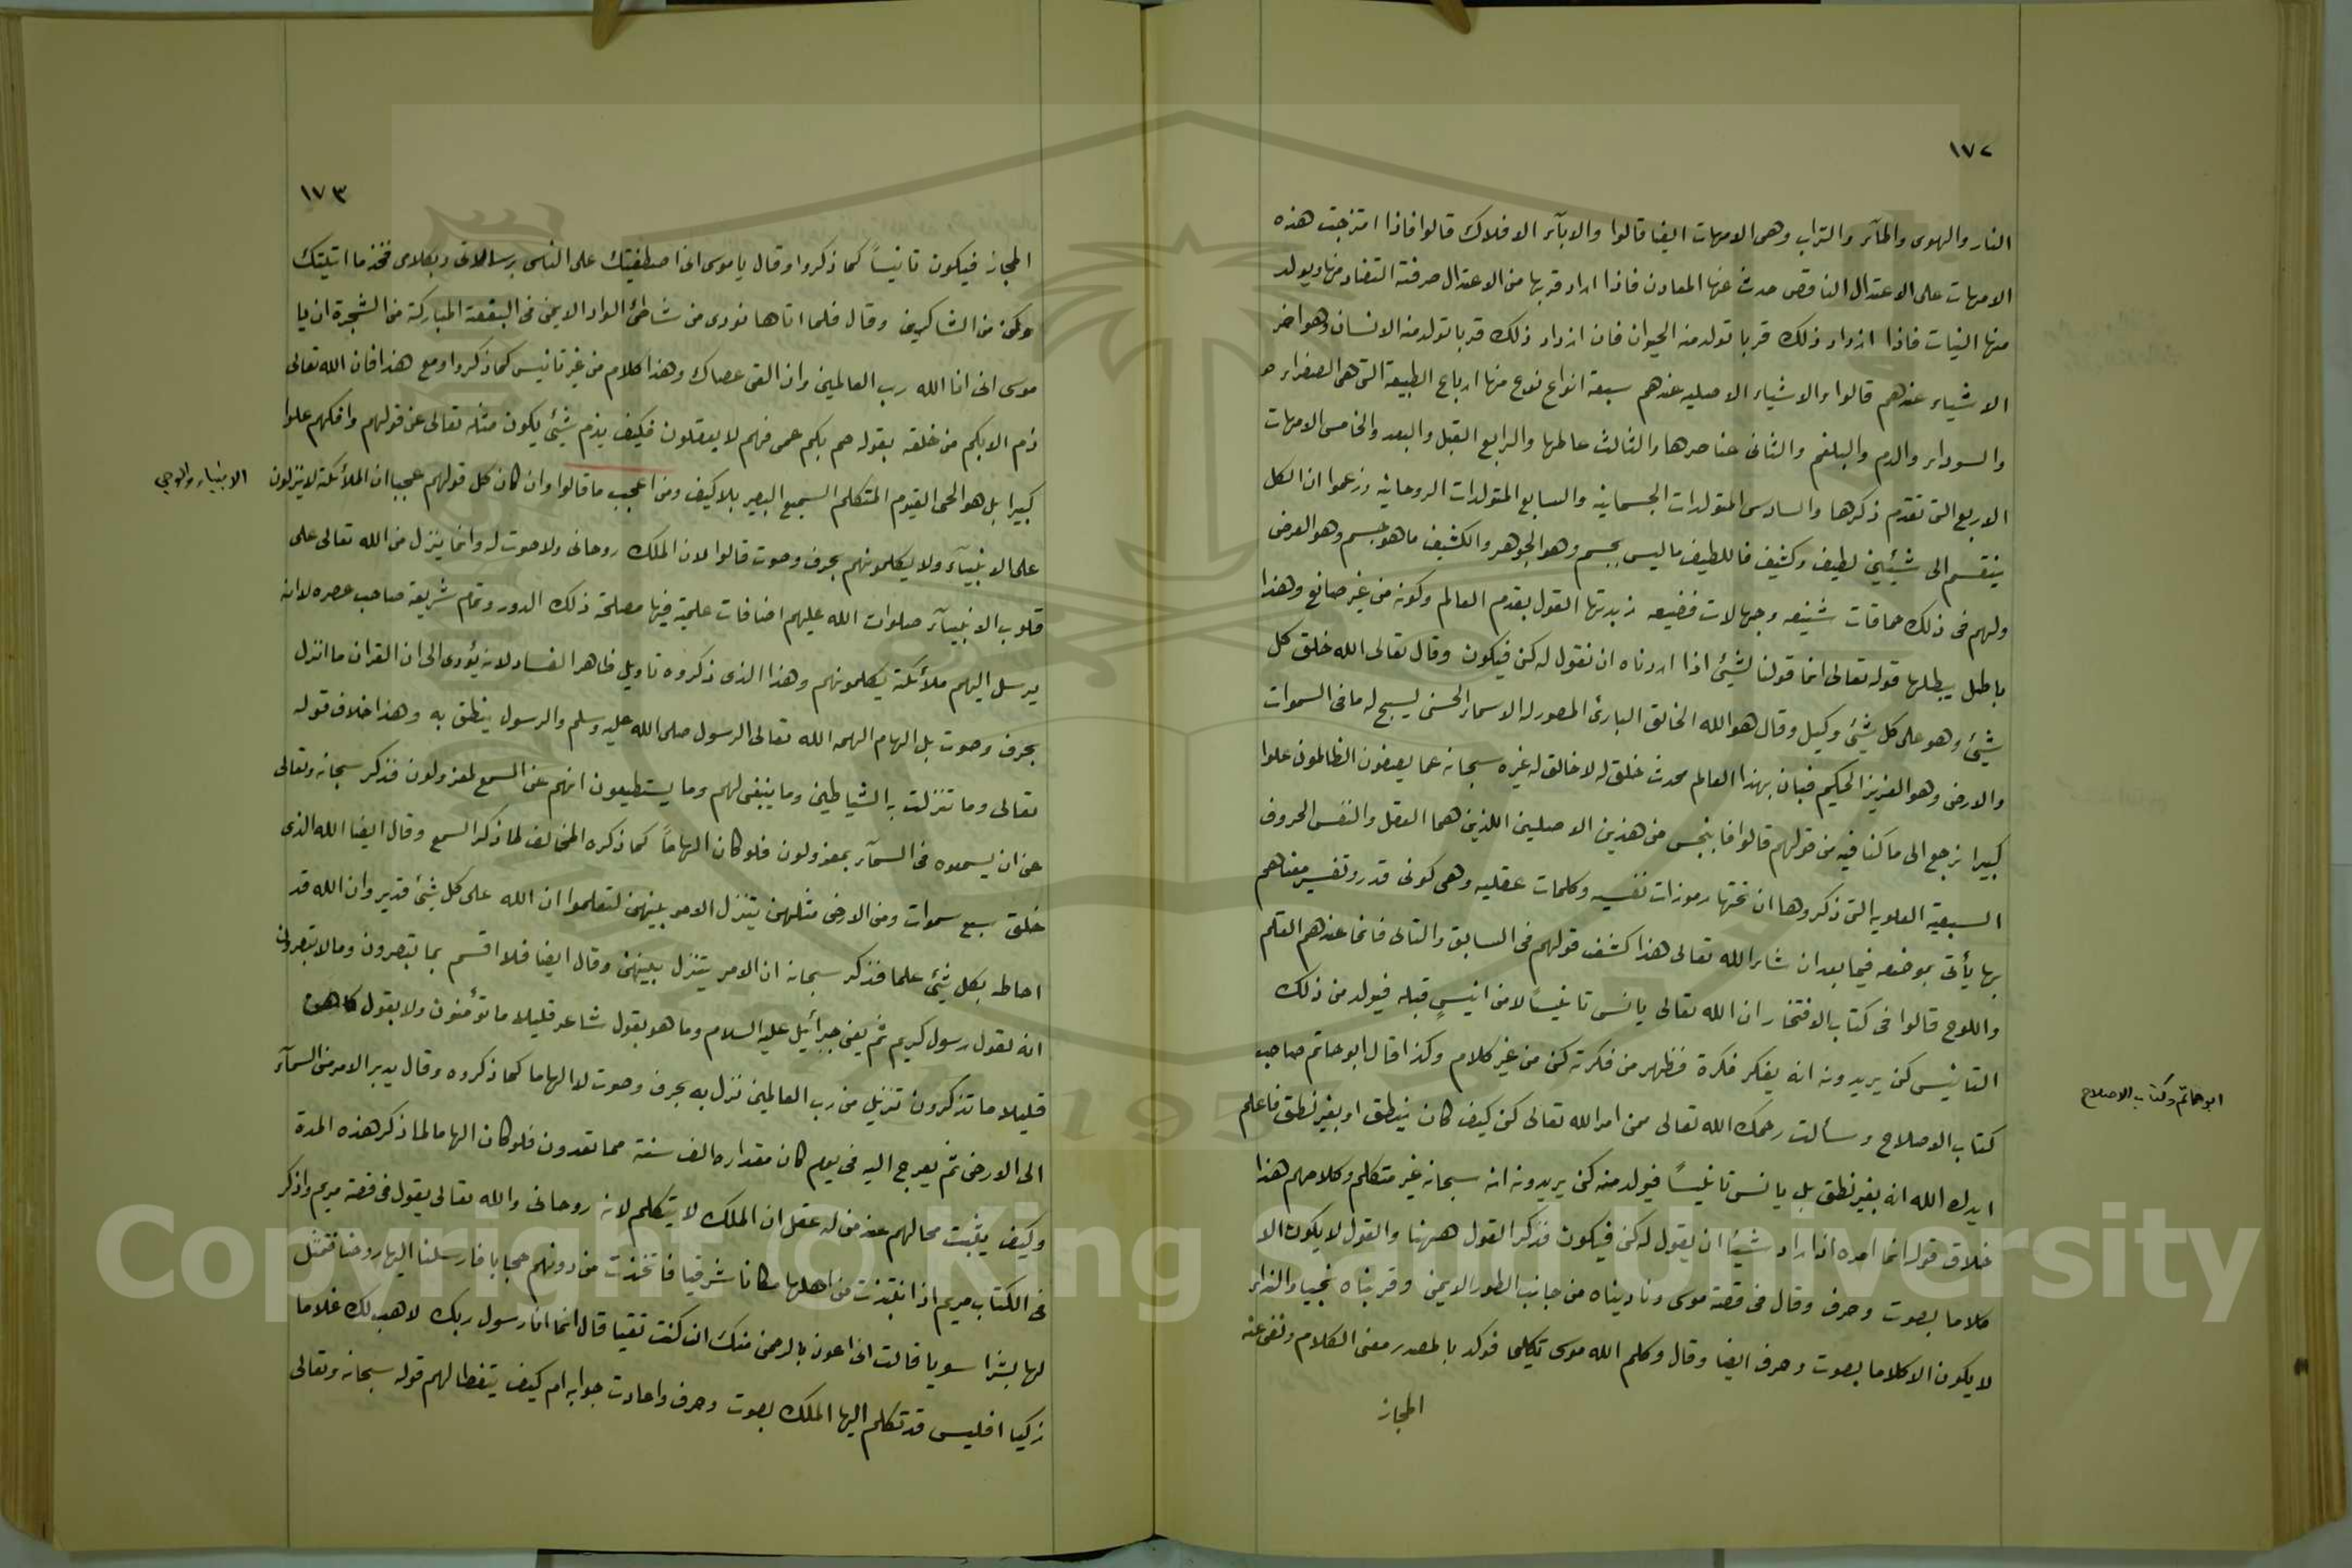 ١٧٢
النار والهوى والمآء والتراب وهى الامهات ايضا قالوا والابآء الافلاك قالوا فاذا امتزجت هذه
الامهات على الاعتدال الناقص حدث عنها المعادن فاذا ازداد قربها من الاعتدال صرفته التضاد منها ويولد
منها النبات فاذا ازداد ذلك قربا تولد منه الحيوان فان ازداد ذلك قربا تولد منه الانسان وهو اخر
الاشياء عندهم قالوا والاشياء الاصليه عندهم سبعة انواع نوع منها ارباع الطبيعة التى هى الصفراء
والسوداء والدم والبلغم والثانى عناصرها والثالث عالمها والرابع القبل والبعد والخامس الامهات
الاربع التى تقدم ذكرها والسادس المتولدات الجسمانيه والسابع المتولدات الروحانيه وزعموا ان الكل
ينقسم الى شيئين لطيف وكثيف فاللطيف ما ليس بجسم وهو الجوهر والكثيف ما هو جسم وهو العرض
ولهم فى ذلك حماقات شنيعه وجهالات فضيعه زبدتها القول بقدم العالم وكونه من غير صانع وهذا
باطل يبطلها قوله تعالى انما قولنا لشيئ اذا اردناه ان نقول له كن فيكون وقال تعالى الله خلق كل
شيئ وهو على كل شيئ وكيل وقال هو الله الخالق البارئ المصور له الاسماء الحسنى يسبح له ما فى السموات
والارض وهو العزيز الحكيم فبان بهذا العالم محدث خلق له لا خالق له غيره سبحانه عما يصفون الظالمون علوا
كبيرا نرجع الى ما كنا فيه من قولهم قالوا فانبجس من هذين الاصلين اللذين هما العقل والنفس الحروف
السبعية العلويه التى ذكروها ان تحتها رموزات نفسيه وكلمات عقليه وهى كونى قدر وتفسير معناهم
بها يأتى بموضعه فيما بعد ان شاء الله تعالى هذا كشف قولهم فى السابق والتالى فانما عندهم القلم
واللوح قالوا فى كتاب الافتخار ان الله تعالى يانس تانيسًا لا من انيسٍ قبله فيولد من ذلك
التانيس كن يريدونه انه يفكر فكرة فظهر من فكرته كن من غير كلام وكذا قال ابو حاتم صاحب
ابو حاتم وكتاب الاصلاح
كتاب الاصلاح وسألت رحمك الله تعالى من امر الله تعالى كن كيف كان ينطق او بغير نطق فاعلم
ايدك الله انه بغير نطق بل يانس تانيسًا فيولد منه كن يريدونه انه سبحانه غير متكلم وكلامهم هذا
خلاف قوله انما امره اذا اراد شيئا ان يقول له كن فيكون فذكر القول ههنا والقول لا يكون الا
كلاما بصوت وحرف وقال فى قصة موسى وناديناه من جانب الطور الايمن وقربناه نجيا والنداء
لا يكون الا كلاما بصوت وحرف ايضا وقال وكلم الله موسى تكليما فوكد بالمصدر معنى الكلام ونفى عنه
المجاز
١٧٣
المجاز فيكون تانيسًا كما ذكروا وقال يا موسى انى اصطفيتك على الناس برسالاتى وبكلامى فخذ ما اتيتك
وكن من الشاكرين وقال فلما اتاها نودى من شاطئ الواد الايمن فى البقعة المباركة من الشجرة ان يا
موسى انى انا الله رب العالمين وان القى عصاك وهذا كلام من غير تانيس كما ذكروا ومع هذا فان الله تعالى
ذم الابكم من خلقه بقوله صم بكم عمى فهم لا يعقلون فكيف يذم شيئ يكون مثله تعالى عن قولهم وافكهم علوا
كبيرا بل هو الحى القيوم المتكلم السميع البصير بلا كيف ومن اعجب ما قالوا وان كان كل قولهم عجبا ان الملائكة لا ينزلون
الانبياء والوحي
على الانبيآء ولا يكلمونهم بحرف وصوت قالوا لان الملك روحانى ولا صوت له وانما ينزل من الله تعالى على
قلوب الانبيآء صلوات الله عليهم اضافات علمية فيها مصلحة ذلك الدور وتمام شريعة صاحب عصره لا انه
يرسل اليهم ملائكة يكلمونهم وهذا الذى ذكروه تاويل ظاهر الفساد لانه يؤدى الى ان القران ما انزل
بحرف وصوت بل الهام الهمه الله تعالى الرسول صلى الله عليه وسلم والرسول ينطق به وهذا خلاف قوله
تعالى وما تنزلت به الشياطين وما ينبغى لهم وما يستطيعون انهم عن السمع لمعزولون فذكر سبحانه وتعالى
عن ان يسمعوه فى السمآء بمعزولون فلو كان الهامًا كما ذكره المخالف لما ذكر السمع وقال ايضا الله الذى
خلق سبع سموات ومن الارض مثلهن يتنزل الامر بينهن لتعلموا ان الله على كل شيئ قدير وان الله قد
احاط بكل شيئ علما فذكر سبحانه ان الامر يتنزل بينهن وقال ايضا فلا اقسم بما تبصرون وما لا تبصرون
انه لقول رسول كريم ثم يعنى جبرائيل عليه السلام وما هو بقول شاعر قليلا ما تؤمنون ولا بقول كاهن
قليلا ما تذكرون تنزيل من رب العالمين نزل به بحرف وصوت لا الهاما كما ذكروه وقال يدبر الامر من السمآء
الى الارض ثم يعرج اليه فى يوم كان مقداره الف سنة مما تعدون فلو كان الهاما لما ذكر هذه المدة
وكيف يثبت محالهم عند من له عقل ان الملك لا يتكلم لانه روحانى والله تعالى يقول فى قصة مريم واذكر
فى الكتاب مريم اذ انتبذت من اهلها مكانا شرقيا فاتخذت من دونهم حجابا فارسلنا اليها روحنا فتمثل
لها بشرا سويا قالت انى اعوذ بالرحمن منك ان كنت تقيا قال انما انا رسول ربك لاهب لك غلاما
زكيا افليس قد تكلم اليها الملك بصوت وحرف واعادت جوابه ام كيف يتغطا لهم قوله سبحانه وتعالى
Copyright © King Saud University
195